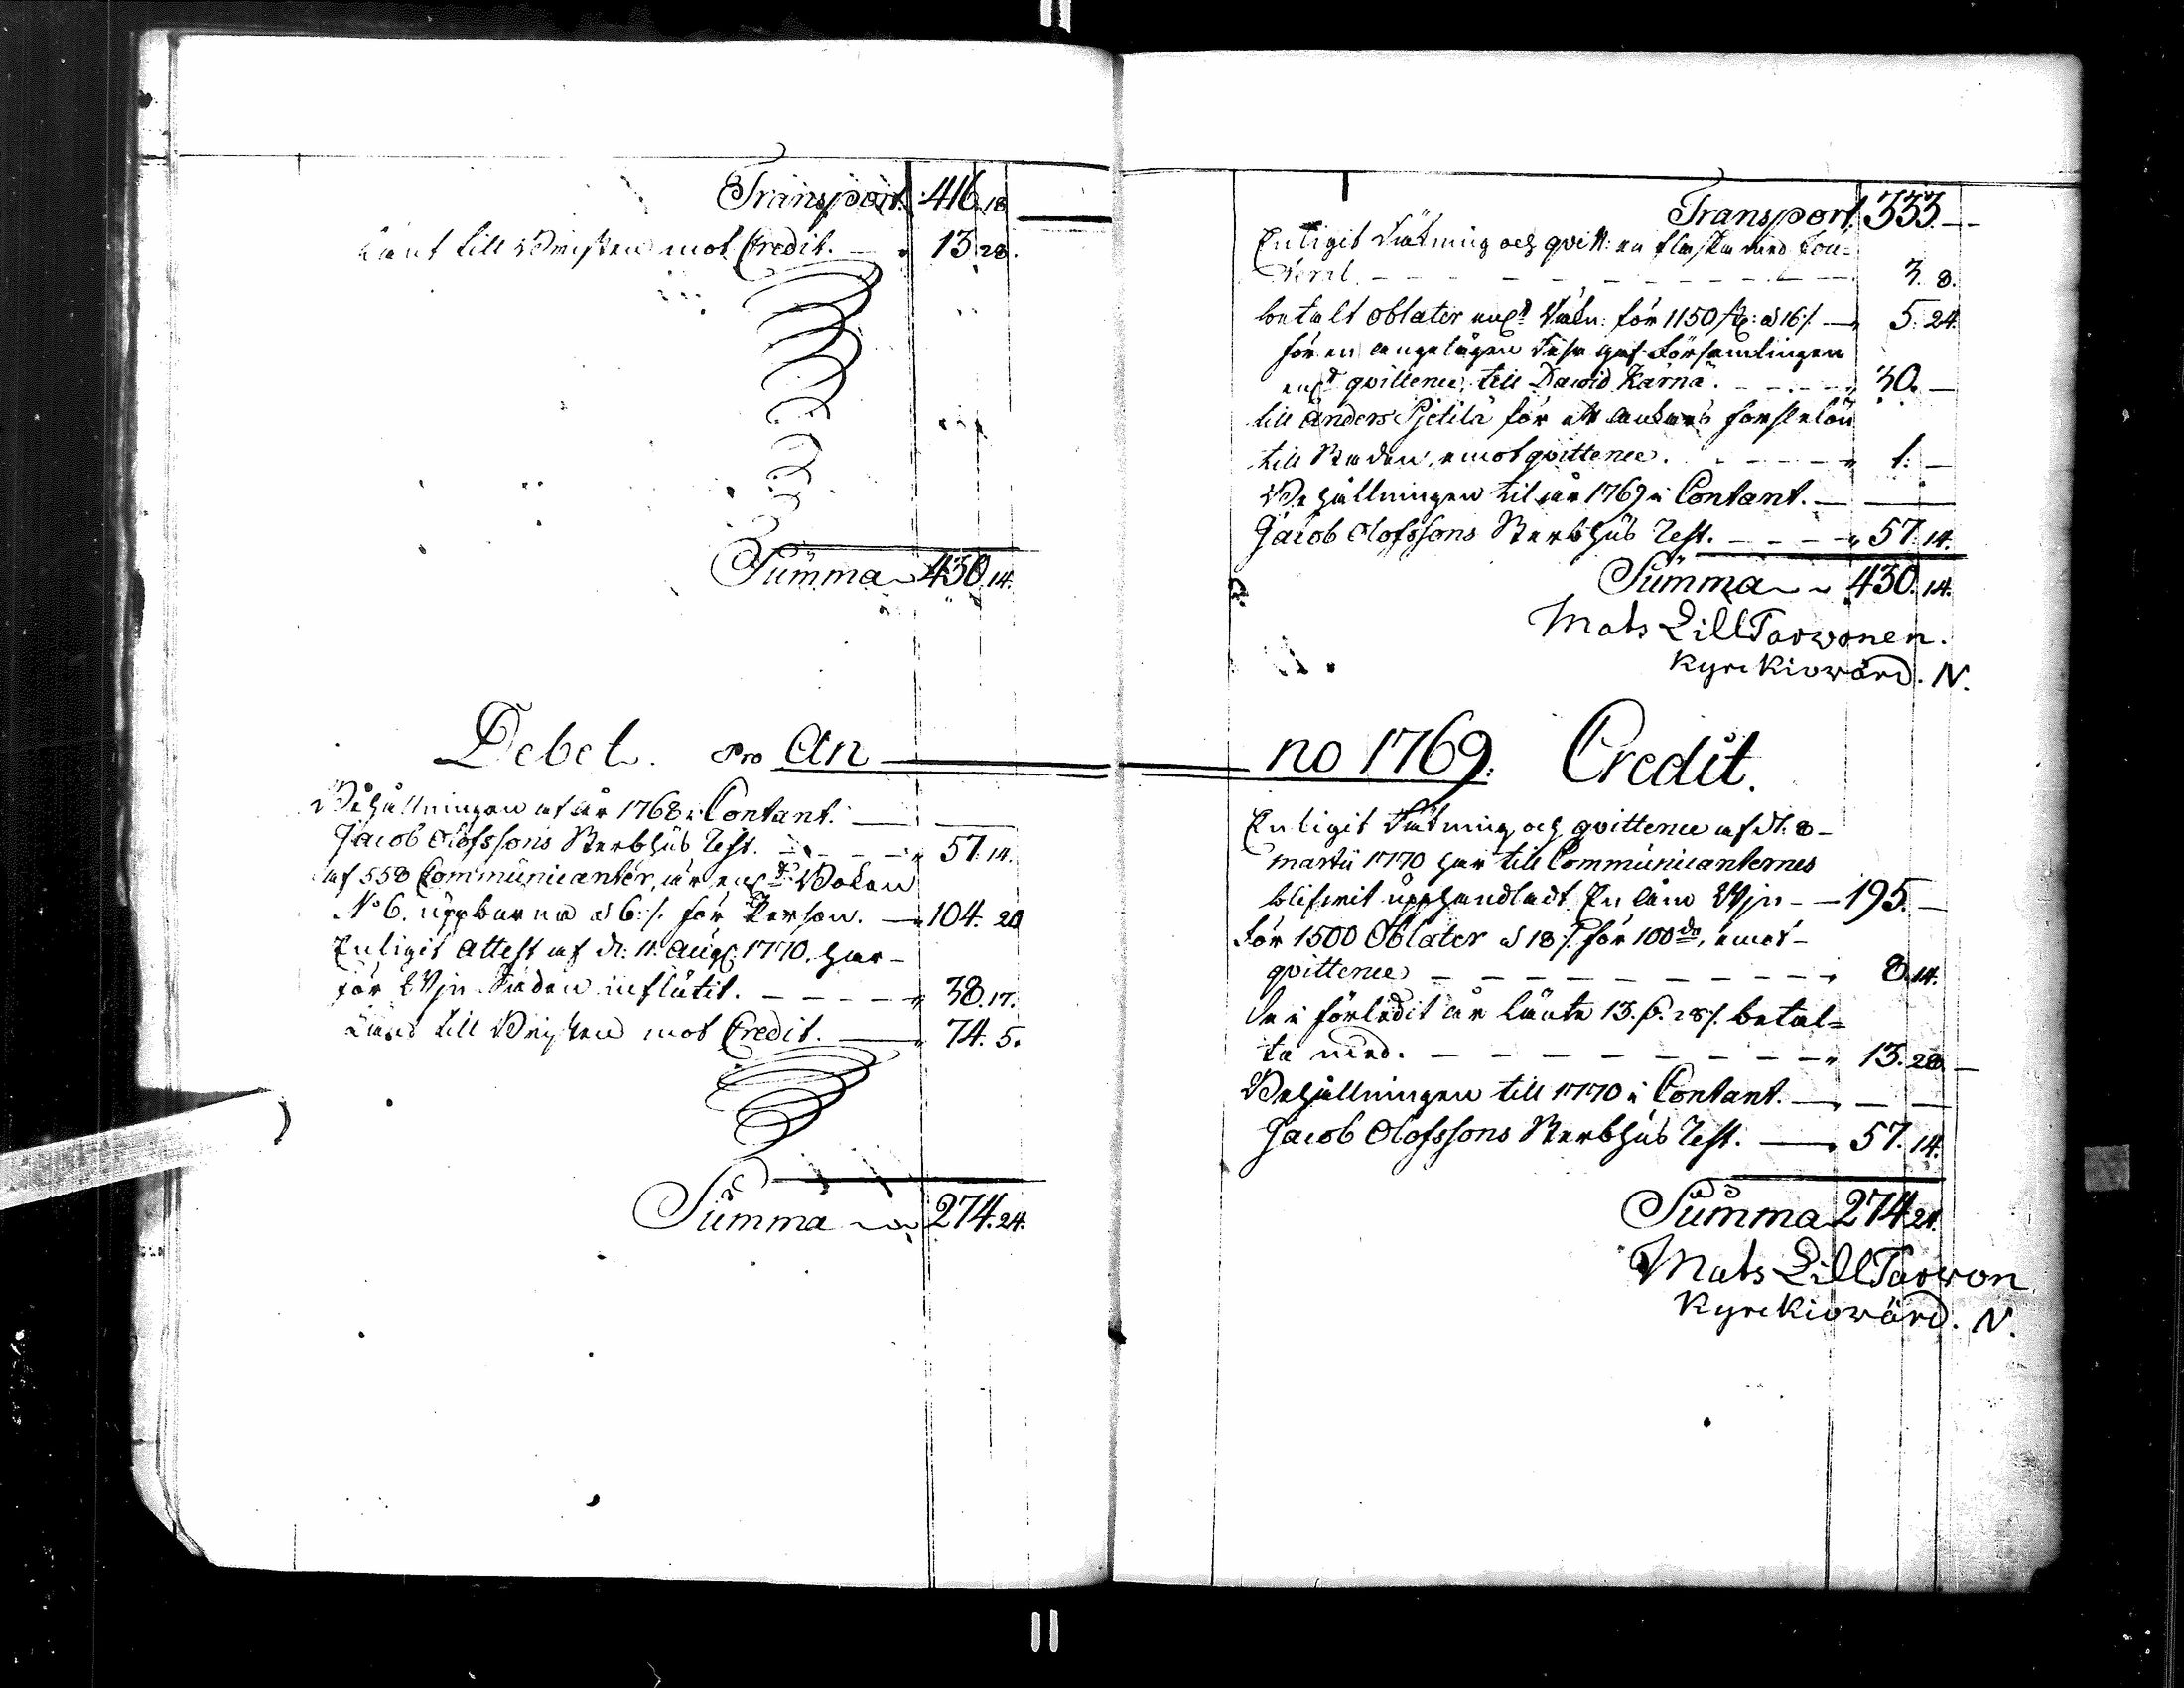 Transport. 416. 18
Lånt till Bristen mot Credit. — 13. 28.
Summa 430. 14.
Debet. Pro An
Behållningen af år 1768 i Contant. —
Jacob Olofssons Sterbhus Rest. - - - 57. 14.
af 558 Communicanter, är enl:t Boken
No 6. uppburne à 6 :/. för Person. — 104. 20
Enligit Attest af d. 11. Aug: 1770, har
för Wjn Süden influtit. - - - - 38. 17.
Lånt till Bristen mot Credit. — 74. 5.
Summa 274. 24.
Transport. 333. —
Enligit Räkning och qvitt: en flaska med
- - - - - - 3. 8.
betalt oblater enl:t Räkn: för 1150 st: à 16 /. — 5. 24.
för en angelägen gaf Församlingen
enl:t qvittence, till Dawid Kärnä. - - - 30. —
till Anders Pjetilä för ett ankars forslelön
till Staden, emot qvittence. - - - - 1. —
Behållningen til år 1769 i Contant. — —
Jacob Olofssons Sterbhus Rest. - - - - 57. 14.
Summa 430. 14.
Mats LillTarvonen.
Kyrckiowärd. N.
no 1769. Credit.
Enligit Räkning och qvittence af d. 8
martii 1770 har till Communicanternes
blifwit upphandladt En åm Wjn - - 195. —
För 1500 Oblater à 18 /. för 100 do, emot
qvittence - - - - - - 8. 14.
De i förledit år lånte 13. 28 /. betal=
ta med. - - - - - - 13. 28. —
Behållningen till 1770 i Contant. — — —
Jacob Olofssons Sterbhus Rest. — 57. 14.
Summa 274 24.
Mats LillTarvon
Kyrckiowärd. N.